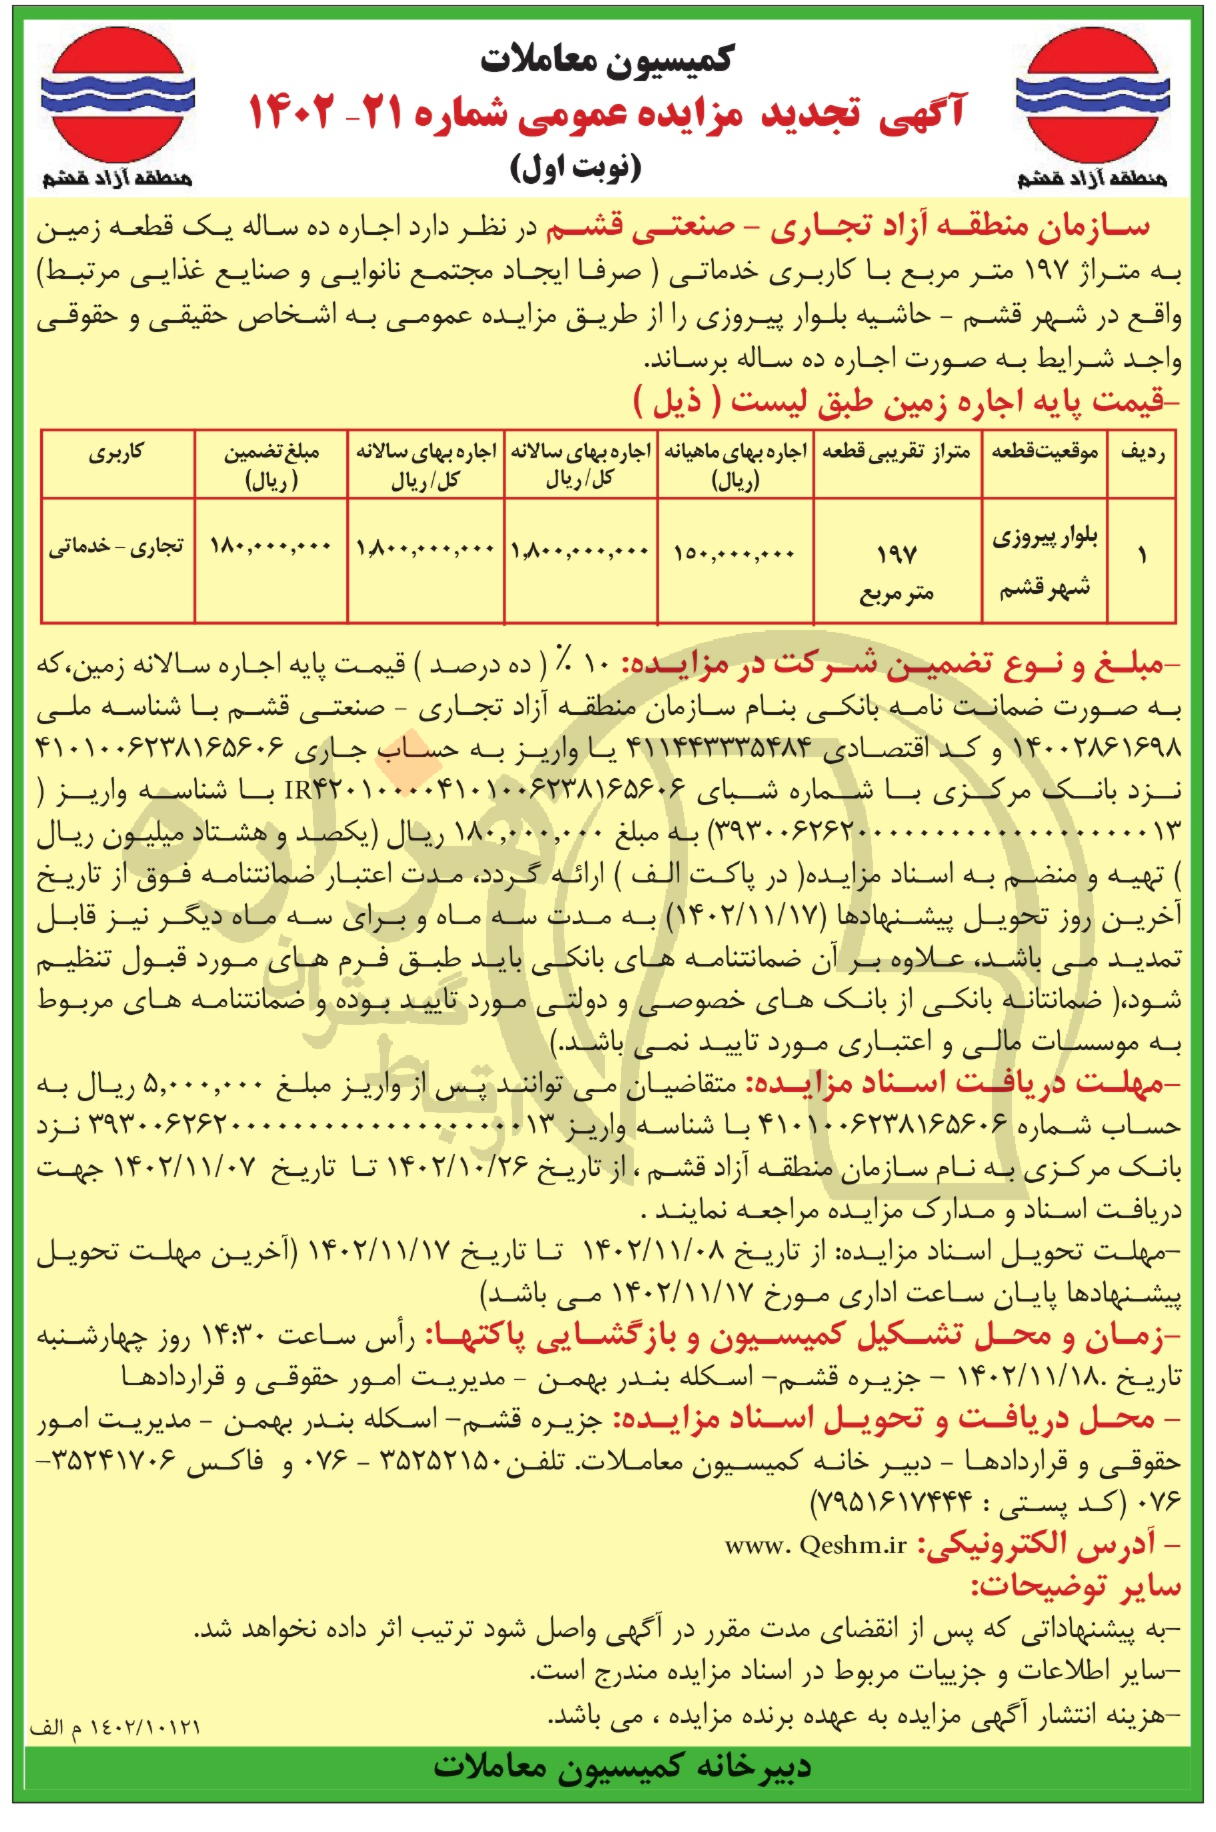 کمیسیون معاملات
آگهی تجدید مزایده عمومی شماره ۲۱- ۱۴۰۲
(نوبت اول)
منطقه آزاد قشم
منطقه آزاد قشم
سازمان منطقه آزاد تجاری - صنعتی قشم در نظر دارد اجاره ده ساله یک قطعه زمین
به متراژ ۱۹۷ متر مربع با کاربری خدماتی ( صرفا ایجاد مجتمع نانوایی و صنایع غذایی مرتبط)
واقع در شهر قشم - حاشیه بلوار پیروزی را از طریق مزایده عمومی به اشخاص حقیقی و حقوقی
واجد شرایط به صورت اجاره ده ساله برساند.
-قیمت پایه اجاره زمین طبق لیست ( ذیل )
ردیف موقعیت قطعه متراز تقریبی قطعه اجاره بهای ماهیانه (ریال) اجاره بهای سالانه کل/ ریال اجاره بهای سالانه کل/ ریال مبلغ تضمین (ریال) کاربری
۱ بلوار پیروزی شهر قشم ۱۹۷ متر مربع ۱۵۰,۰۰۰,۰۰۰ ۱,۸۰۰,۰۰۰,۰۰۰ ۱,۸۰۰,۰۰۰,۰۰۰ ۱۸۰,۰۰۰,۰۰۰ تجاری - خدماتی
-مبلغ و نوع تضمین شرکت در مزایده: ۱۰ ٪ ( ده درصد ) قیمت پایه اجاره سالانه زمین،که
به صورت ضمانت نامه بانکی بنام سازمان منطقه آزاد تجاری - صنعتی قشم با شناسه ملی
۱۴۰۰۲۸۶۱۶۹۸ و کد اقتصادی ۴۱۱۴۴۳۳۳۵۴۸۴ یا واریز به حساب جاری ۴۱۰۱۰۰۶۲۳۸۱۶۵۶۰۶
نزد بانک مرکزی با شماره شبای IR۴۲۰۱۰۰۰۰۴۱۰۱۰۰۶۲۳۸۱۶۵۶۰۶ با شناسه واریز (
۳۹۳۰۰۶۲۶۲۰۰۰۰۰۰۰۰۰۰۰۰۰۰۰۰۰۰۰۱۳) به مبلغ ۱۸۰,۰۰۰,۰۰۰ ریال (یکصد و هشتاد میلیون ریال
) تهیه و منضم به اسناد مزایده( در پاکت الف ) ارائه گردد، مدت اعتبار ضمانتنامه فوق از تاریخ
آخرین روز تحویل پیشنهادها (۱۴۰۲/۱۱/۱۷) به مدت سه ماه و برای سه ماه دیگر نیز قابل
تمدید می باشد، علاوه بر آن ضمانتنامه های بانکی باید طبق فرم های مورد قبول تنظیم
شود،( ضمانتانه بانکی از بانک های خصوصی و دولتی مورد تایید بوده و ضمانتنامه های مربوط
به موسسات مالی و اعتباری مورد تایید نمی باشد.)
-مهلت دریافت اسناد مزایده: متقاضیان می توانند پس از واریز مبلغ ۵,۰۰۰,۰۰۰ ریال به
حساب شماره ۴۱۰۱۰۰۶۲۳۸۱۶۵۶۰۶ با شناسه واریز ۳۹۳۰۰۶۲۶۲۰۰۰۰۰۰۰۰۰۰۰۰۰۰۰۰۰۰۰۱۳ نزد
بانک مرکزی به نام سازمان منطقه آزاد قشم ، از تاریخ ۱۴۰۲/۱۰/۲۶ تا تاریخ ۱۴۰۲/۱۱/۰۷ جهت
دریافت اسناد و مدارک مزایده مراجعه نمایند .
-مهلت تحویل اسناد مزایده: از تاریخ ۱۴۰۲/۱۱/۰۸ تا تاریخ ۱۴۰۲/۱۱/۱۷ (آخرین مهلت تحویل
پیشنهادها پایان ساعت اداری مورخ ۱۴۰۲/۱۱/۱۷ می باشد)
-زمان و محل تشکیل کمیسیون و بازگشایی پاکتها: رأس ساعت ۱۴:۳۰ روز چهارشنبه
تاریخ .۱۴۰۲/۱۱/۱۸ - جزیره قشم- اسکله بندر بهمن - مدیریت امور حقوقی و قراردادها
- محل دریافت و تحویل اسناد مزایده: جزیره قشم- اسکله بندر بهمن - مدیریت امور
حقوقی و قراردادها - دبیر خانه کمیسیون معاملات. تلفن۳۵۲۵۲۱۵۰ - ۰۷۶ و فاکس ۳۵۲۴۱۷۰۶-
۰۷۶ (کد پستی : ۷۹۵۱۶۱۷۴۴۴)
- آدرس الکترونیکی: www. Qeshm.ir
سایر توضیحات:
-به پیشنهاداتی که پس از انقضای مدت مقرر در آگهی واصل شود ترتیب اثر داده نخواهد شد.
-سایر اطلاعات و جزییات مربوط در اسناد مزایده مندرج است.
-هزینه انتشار آگهی مزایده به عهده برنده مزایده ، می باشد.
۱٤۰۲/۱۰۱۲۱ م الف
دبیرخانه کمیسیون معاملات
هزاره
گستران
ارتباط